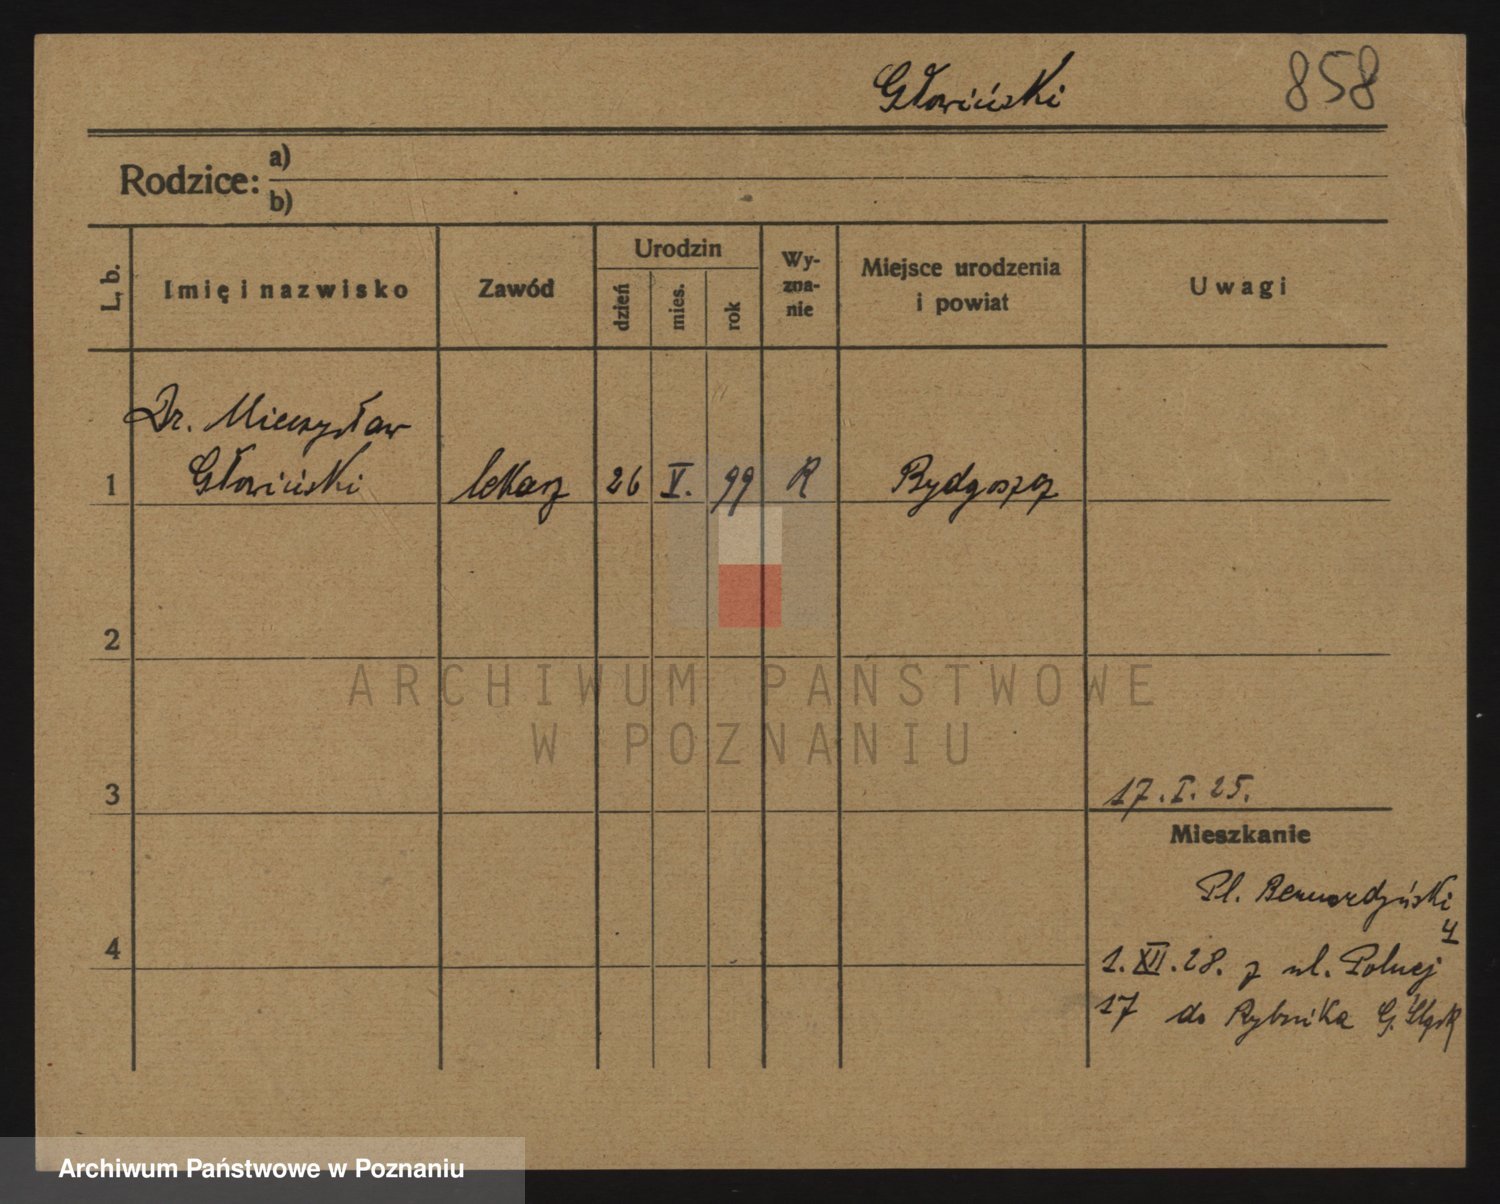 Głowiński 858
Rodzice: a)
b)
L, b. Imię i nazwisko Zawód Urodzin dzień mies. rok Wy-zna-nie Miejsce urodzenia i powiat Uwagi
Dr. Mieczysław
1 Głowiński lekarz 26 V. 99 R Bydgoszcz
2
ARCHIWUM PAŃSTWOWE
W POZNANIU
3 17. I. 25.
Mieszkanie
Pl. Bernardyński
4
4 1. XII. 28. z ul. Polnej
17 do Rybnika G. Śląsk
Archiwum Państwowe w Poznaniu